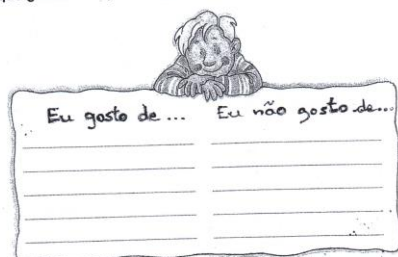 Eu gosto de ... Eu não gosto de...